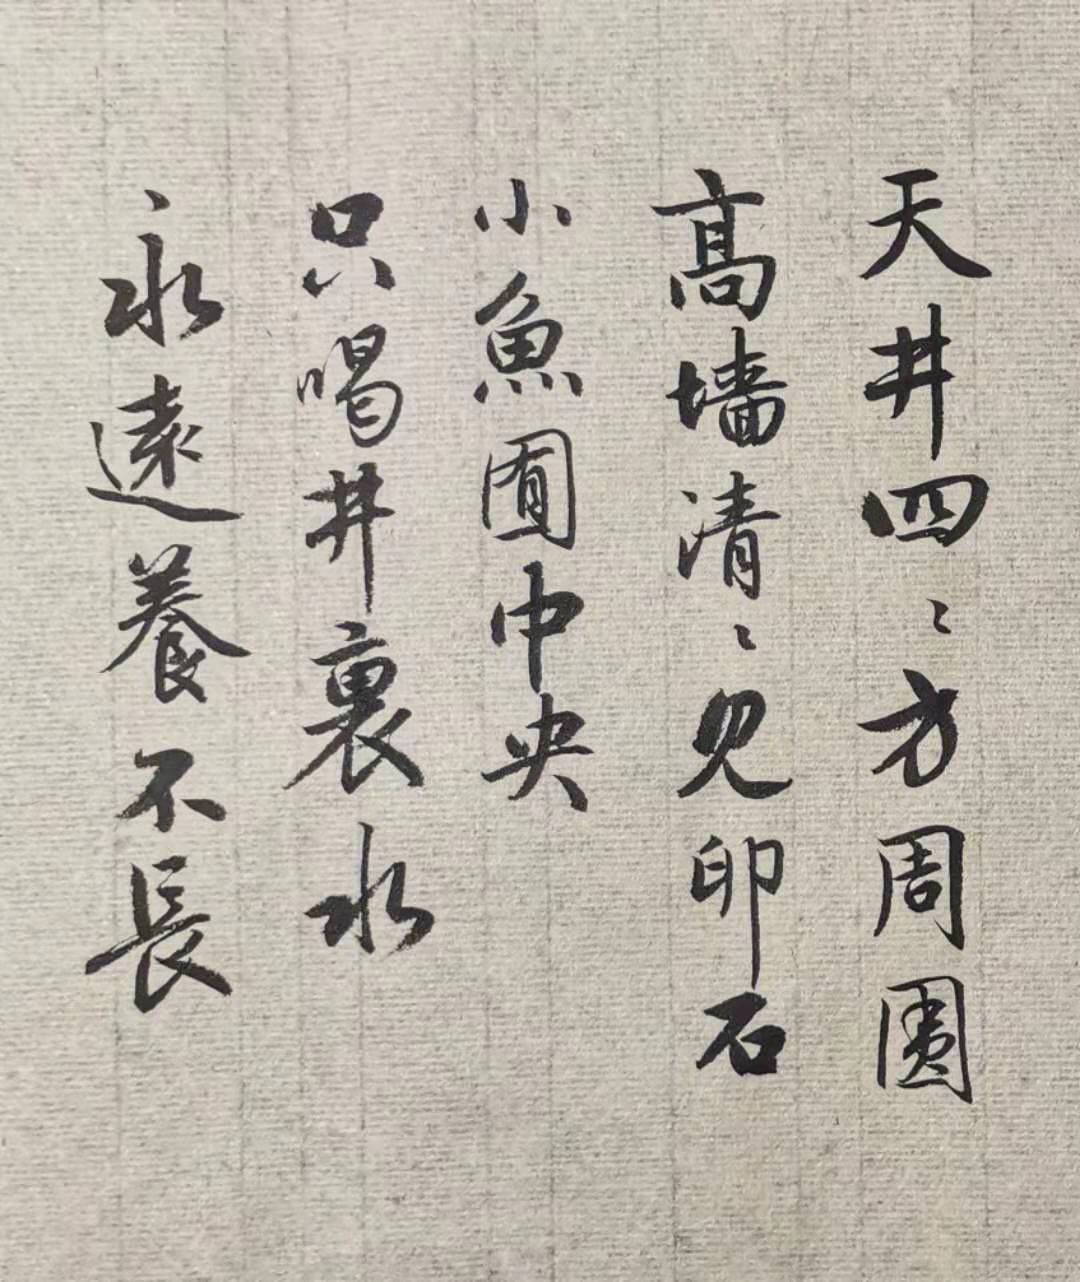 天井四〻方周圍
高墙清〻见卵石
小魚囿中央
只喝井裏水
永遠養不長